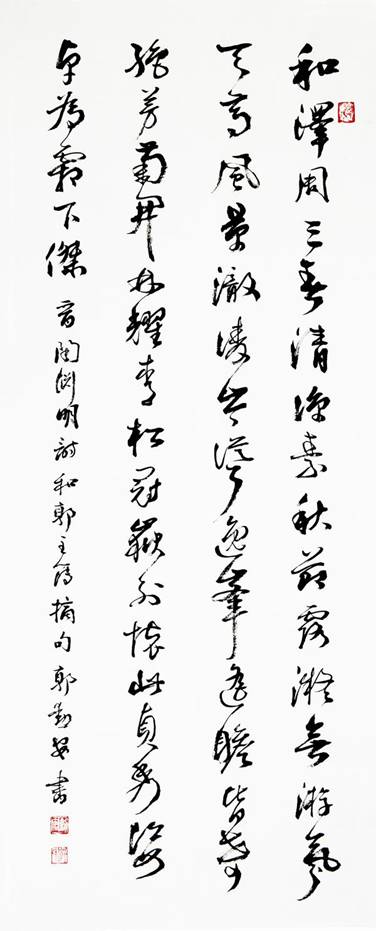 和澤周三春清涼素秋節露凝無游氛
天高風景澈陵岑聳逸峯遥瞻皆奇
絕芳菊開林耀青松冠巖列懷此貞秀姿
卓為霜下傑 晉陶淵明詩和郭主簿摘句郭書